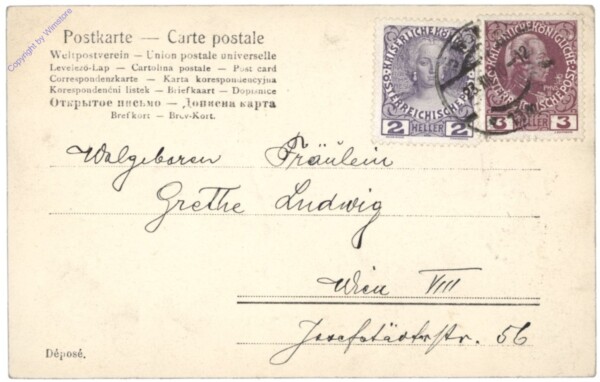 Copyright by Wimstore
Postkarte — Carte postale
Weltpostverein — Union postale universelle
Levelező-Lap — Cartolina postale — Post card
Correspondenzkarte — Karta korespondencyjna
Korespondenční listek — Briefkaart — Dopisnice
Открытое письмо — Дописна карта
Brefkort — Brev-Kort.
KAISERLICHE KÖNIGLICHE ÖSTERREICHISCHE POST
2 HELLER 2
KAISERLICHE KÖNIGLICHE ÖSTERREICHISCHE POST
3 HELLER 3
Wolgeboren Fräulein
Grethe Ludwig
Wien VIII
Josefstädterstr. 56
Déposé.